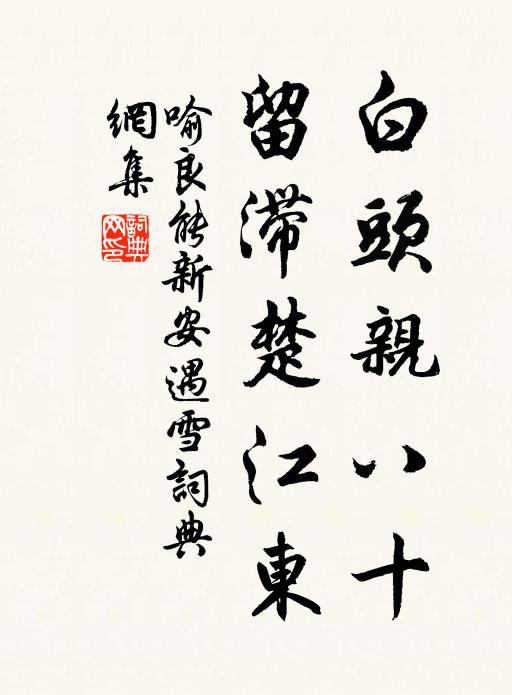 白頭親八十
留滯楚江東
喻良能新安遇雪詞典
網集
詞典
网印